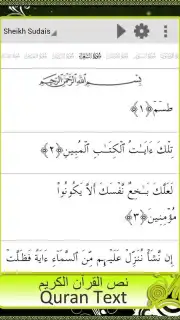 Sheikh Sudais
سُورَةُ الشُّعَرَاءِ
بِسْمِ اللَّهِ الرَّحْمَٰنِ الرَّحِيمِ
طسٓمٓ ﴿١﴾
تِلْكَ ءَايَٰتُ ٱلْكِتَٰبِ ٱلْمُبِينِ ﴿٢﴾
لَعَلَّكَ بَٰخِعٌ نَّفْسَكَ أَلَّا يَكُونُوا۟
مُؤْمِنِينَ ﴿٣﴾
إِن نَّشَأْ نُنَزِّلْ عَلَيْهِم مِّنَ ٱلسَّمَآءِ ءَايَةً فَظَلَّتْ
نص القرآن الكريم
Quran Text